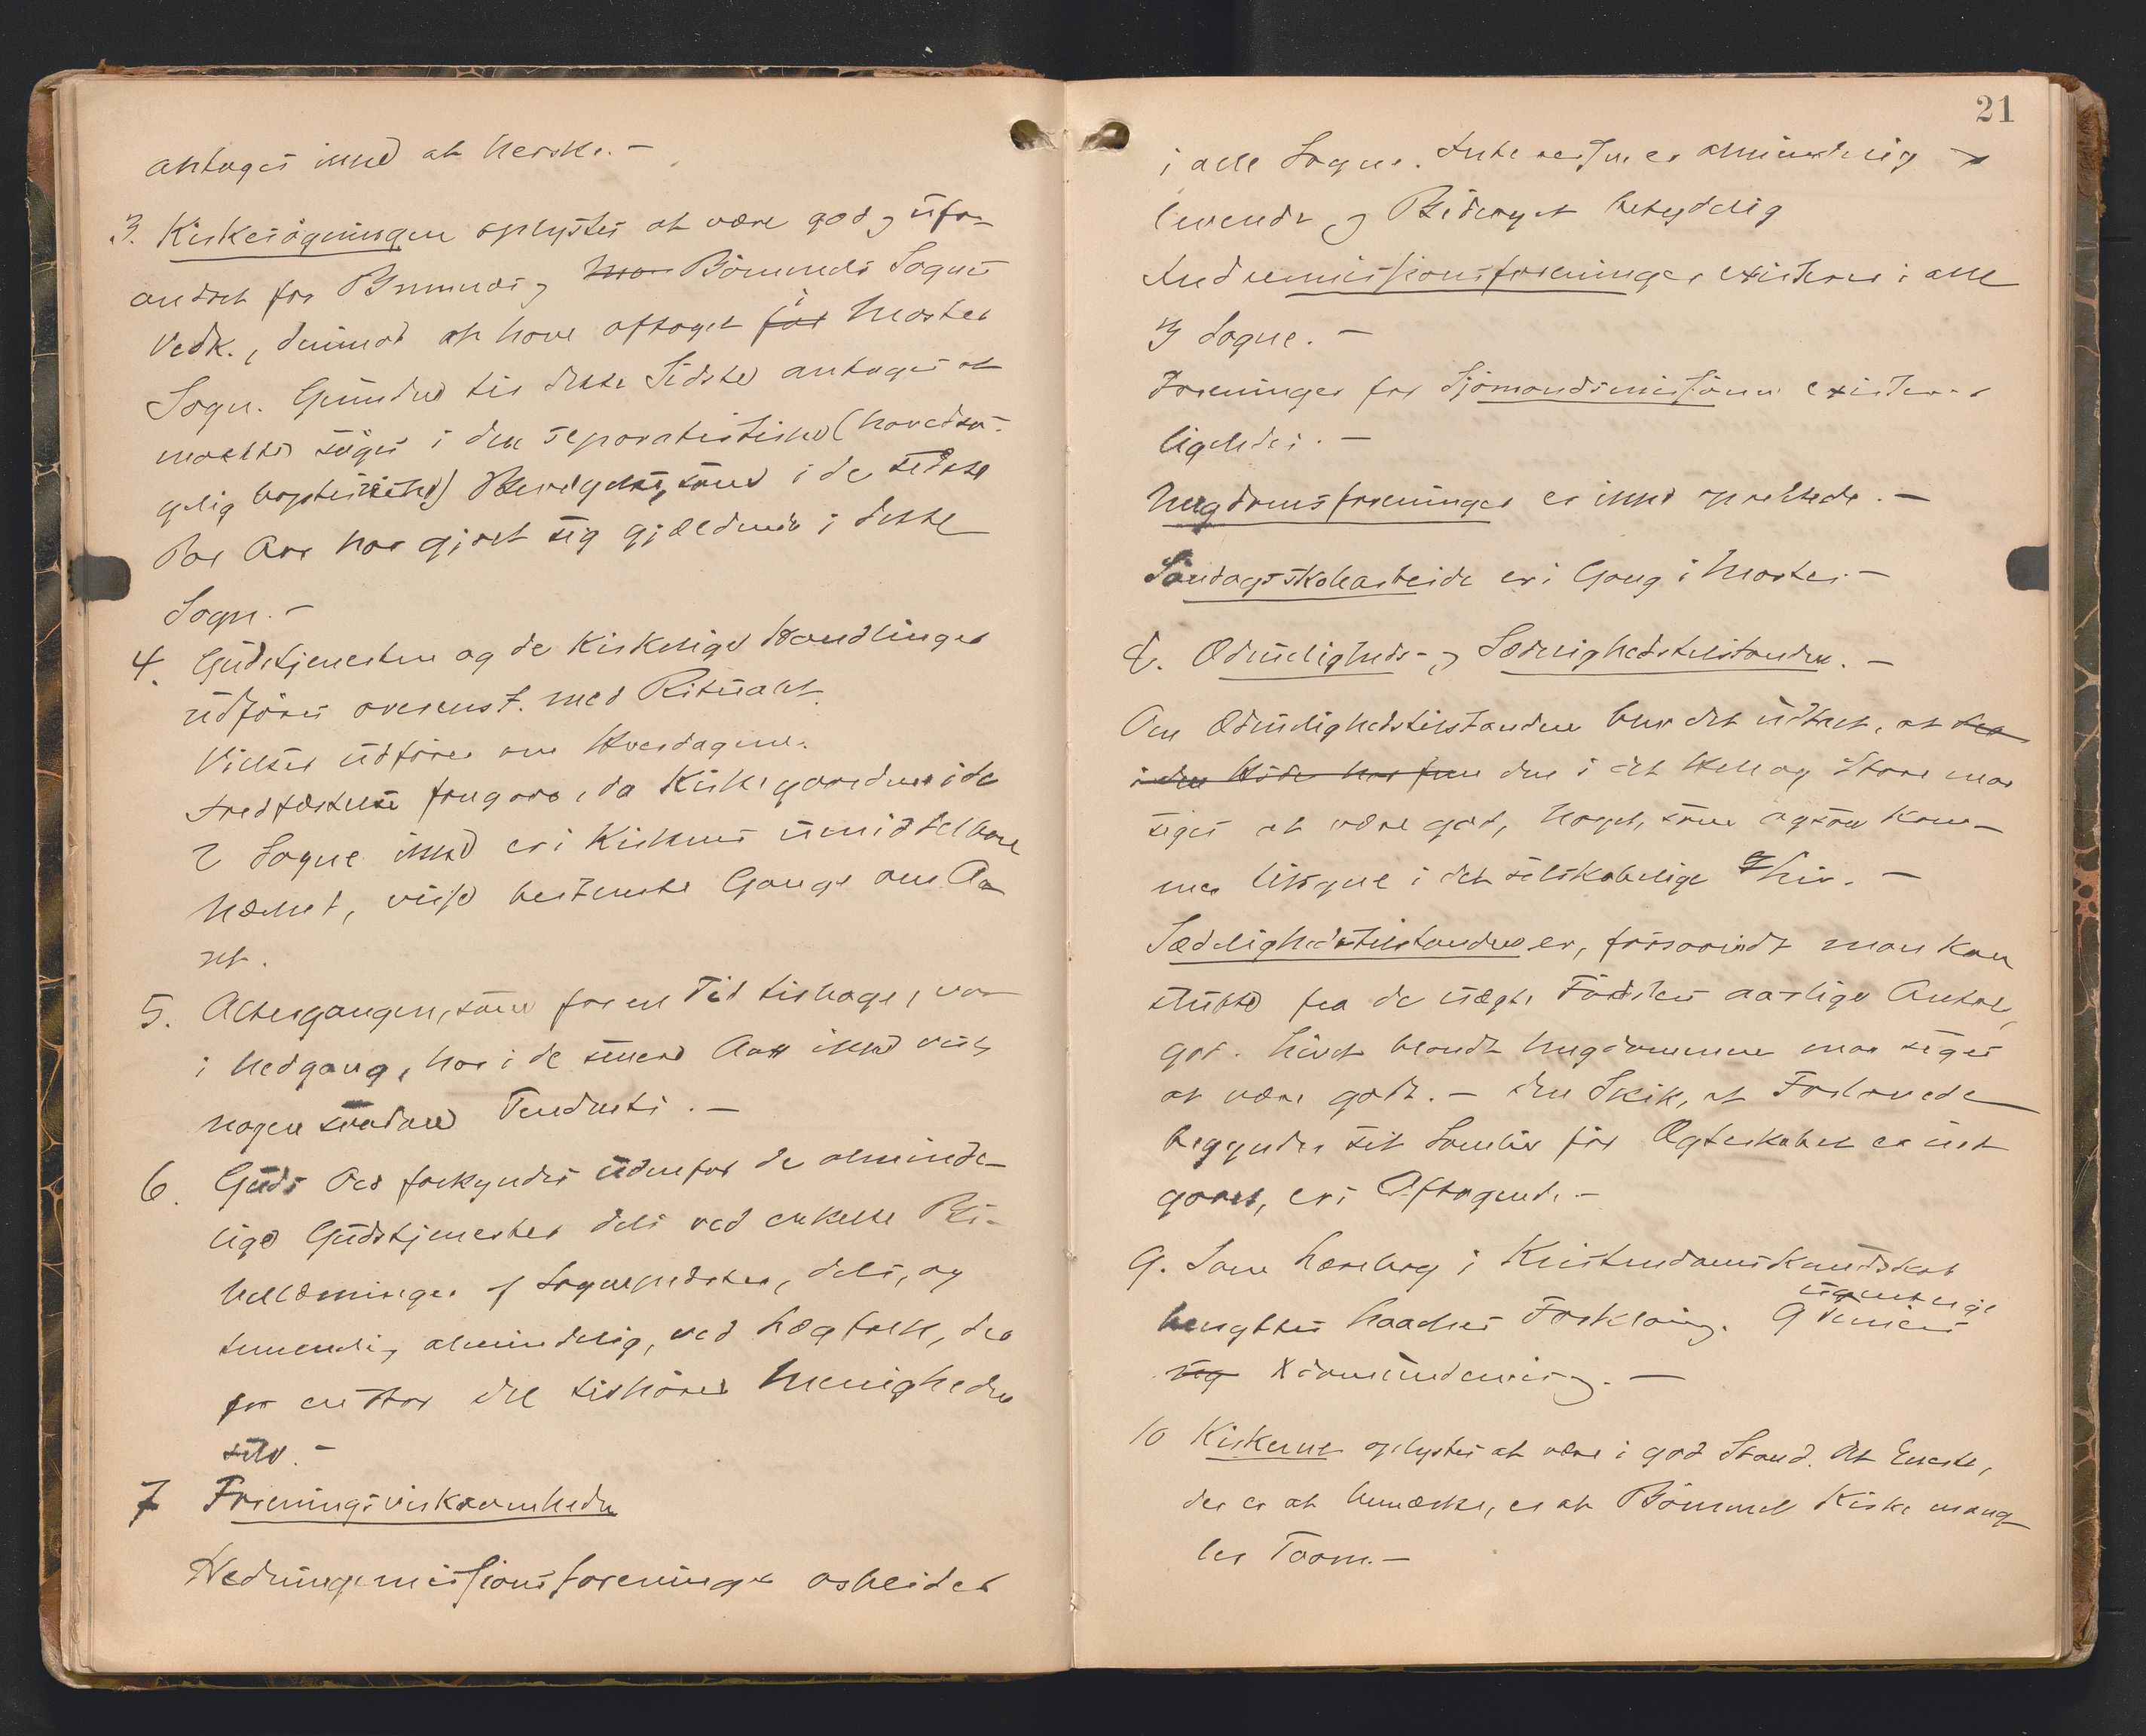 antages ikke at herske. —
3. Kirkesøgningen oplystes at være god, ufor-
andret for Bremnes og Mo Bømmels Sogns
Vedk., derimod at have aftaget for i Moster
Sogn. Grunden til dette Sidste antages at
maatte søges i den separatistiske (hovedsa-
gelig baptistiske) Bevægelse, som i de sidste
Par Aar har gjort sig gjældende i dette
Sogn. —
4. Gudstjenesten og de kirkelige Handlinger
udføres overenst. med Ritualet.
Vielser udføres om Hverdagene.
Jordfæstelse foregaar, da Kirkegaardene i de
2 Sogne ikke er i Kirkens umiddelbare
Nærhed, visse bestemte Gange om Aa-
ret.
5. Altergangen, som for en Tid tilbage, var
i Nedgang, har i de senere Aar ikke vist
nogen saadan Tendents. —
6. Guds Ord forkyndes udenfor de alminde-
lige Gudstjenester dels ved enkelte Bi-
bellæsninger af Sognepresten, dels, og
temmelig almindelig, ved Lægfolk, der
for en stor Del tilhører Menigheden
selv. —
7 Foreningsvirksomheden
Hedningemissionsforeninger arbeider
21
i alle Sogne. Interessen er almindelig
levende og Bidraget betydelig
Indremissionsforeninger existerer i alle
3 Sogne. —
Foreninger for Sjømandsmissionen existerer
ligeledes. —
Ungdomsforeninger er ikke oprettede. —
Søndagsskolearbeide er i Gang i Moster. —
8. Ædrueligheds- og Sædelighedstilstanden. —
Om Ædruelighedstilstanden blev det udtalt, at der
i den Hide har fun den i det Hele og Store maa
siges at være god, noget, som ogsaa kom-
mer tilsyne i det selskabelige Liv. —
Sædelighedstilstanden er, forsaavidt man kan
slutte fra de uægte Fødslers aarlige Antal,
god. Livet blandt Ungdommen maa siges
at være godt. — Den Skik, at Forlovede
begynder sit Samliv før Ægteskabet er ind-
gaaet, er i Aftagende. —
9. Som Lærebog i Kristendomskundskab
benyttes Kaadnes Forklaring. ugentlige
Timers
og Normalundervisning. —
10 Kirkerne oplystes at være i god Stand. Det Eneste,
der er at bemærke, er at Bømmel Kirke mang-
ler Taarn. —